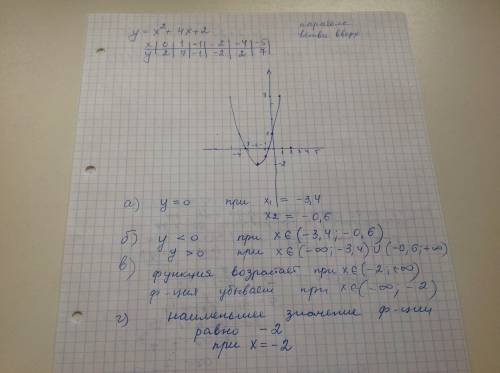 y = x² + 4x + 2
парабола
ветви вверх
x | 0 | 1 | -1 | -2 | -4 | -5
y | 2 | 7 | -1 | -2 | 2 | 7
-2
а) y = 0 при x₁ = -3,4
x2 = -0,6
б) y < 0 при x ∈ (-3,4; -0,6)
y > 0 при x ∈ (-∞; -3,4) ∪ (-0,6; +∞)
в) функция возрастает при x ∈ (-2; +∞)
ф-ция убывает при x ∈ (-∞; -2)
г) наименьшее значение ф-ции
равно -2
при x = -2